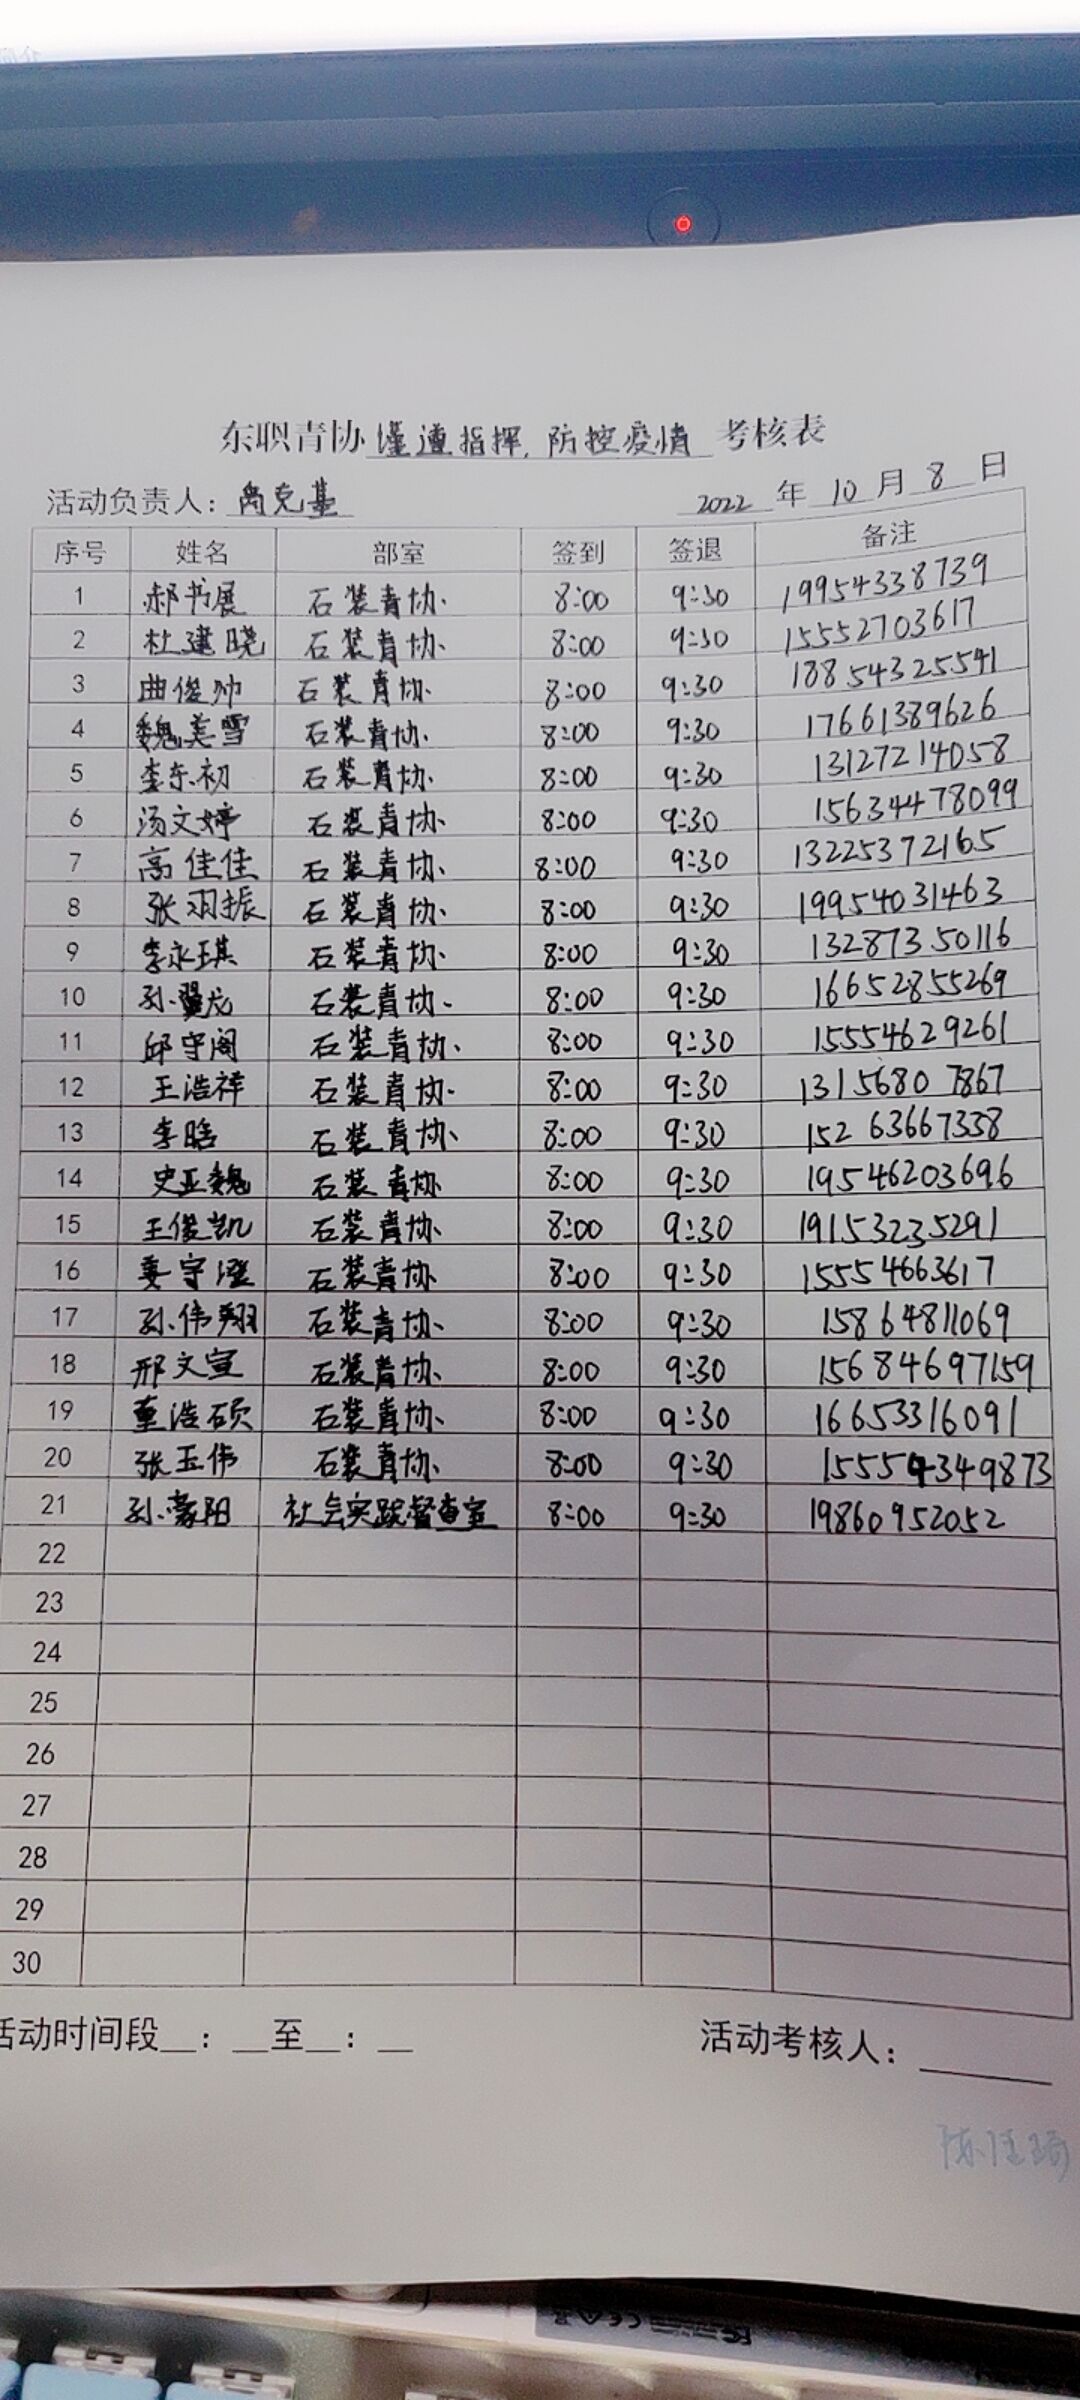 东职青协 谨遵指挥,防控疫情 考核表
活动负责人: 禹克基 2022 年 10 月 8 日
序号 姓名 部室 签到 签退 备注
1 郝书展 石装青协. 8:00 9:30 19954338739
2 杜建晓 石装青协. 8:00 9:30 15552703617
3 曲俊帅 石装青协. 8:00 9:30 18854325541
4 魏美雪 石装青协. 8:00 9:30 17661389626
5 李东初 石装青协. 8:00 9:30 13127214058
6 汤文婷 石装青协. 8:00 9:30 15634478099
7 高佳佳 石装青协. 8:00 9:30 13225372165
8 张羽振 石装青协. 8:00 9:30 19954031463
9 李永琪 石装青协. 8:00 9:30 13287350116
10 孙翼龙 石装青协. 8:00 9:30 16652855269
11 邱守阁 石装青协. 8:00 9:30 15554629261
12 王浩祥 石装青协. 8:00 9:30 13156807867
13 李晗 石装青协、 8:00 9:30 15263667338
14 史亚魏 石装青协 8:00 9:30 19546203696
15 王俊凯 石装青协、 8:00 9:30 19153235291
16 姜守滢 石装青协 8:00 9:30 15554663617
17 孙伟翔 石装青协、 8:00 9:30 15864811069
18 邢文宣 石装青协、 8:00 9:30 15684697159
19 董浩硕 石装青协、 8:00 9:30 16653316091
20 张玉伟 石装青协、 8:00 9:30 155549349873
21 孙蒙阳 社会实践督查室 8:00 9:30 19860952052
22
23
24
25
26
27
28
29
30
活动时间段__:__至__:__ 活动考核人: